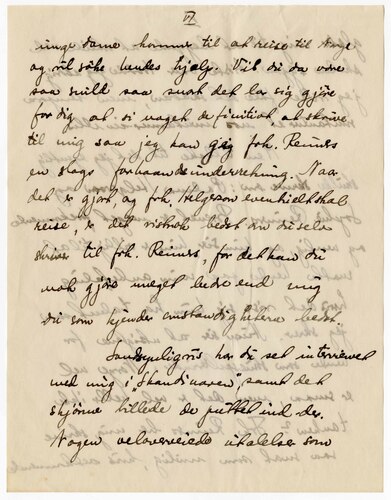 VI
unge dame kommer til at reise til Inge
og vil søke hendes hjælp. Vil du da være
saa snild saa snart det lar sig gjøre
for dig at si noget definitivt, at skrive
til mig saa jeg kan gi frk. Reimers
en slags forhaandsundervisning. Naar
det er gjort, og frk. Helgeson eventuelt skal
reise, er det vistnok bedst om du selv
skriver til frk. Reimers, for det kan du
nok gjøre meget bedre end mig
du som kjender omstændighetene bedst.
Sandsynligvis har du set interviewet
med mig i "Skandinaven", samt det
skjønne billede de puttet ind der.
Nogen veloverveiede uttalelser som